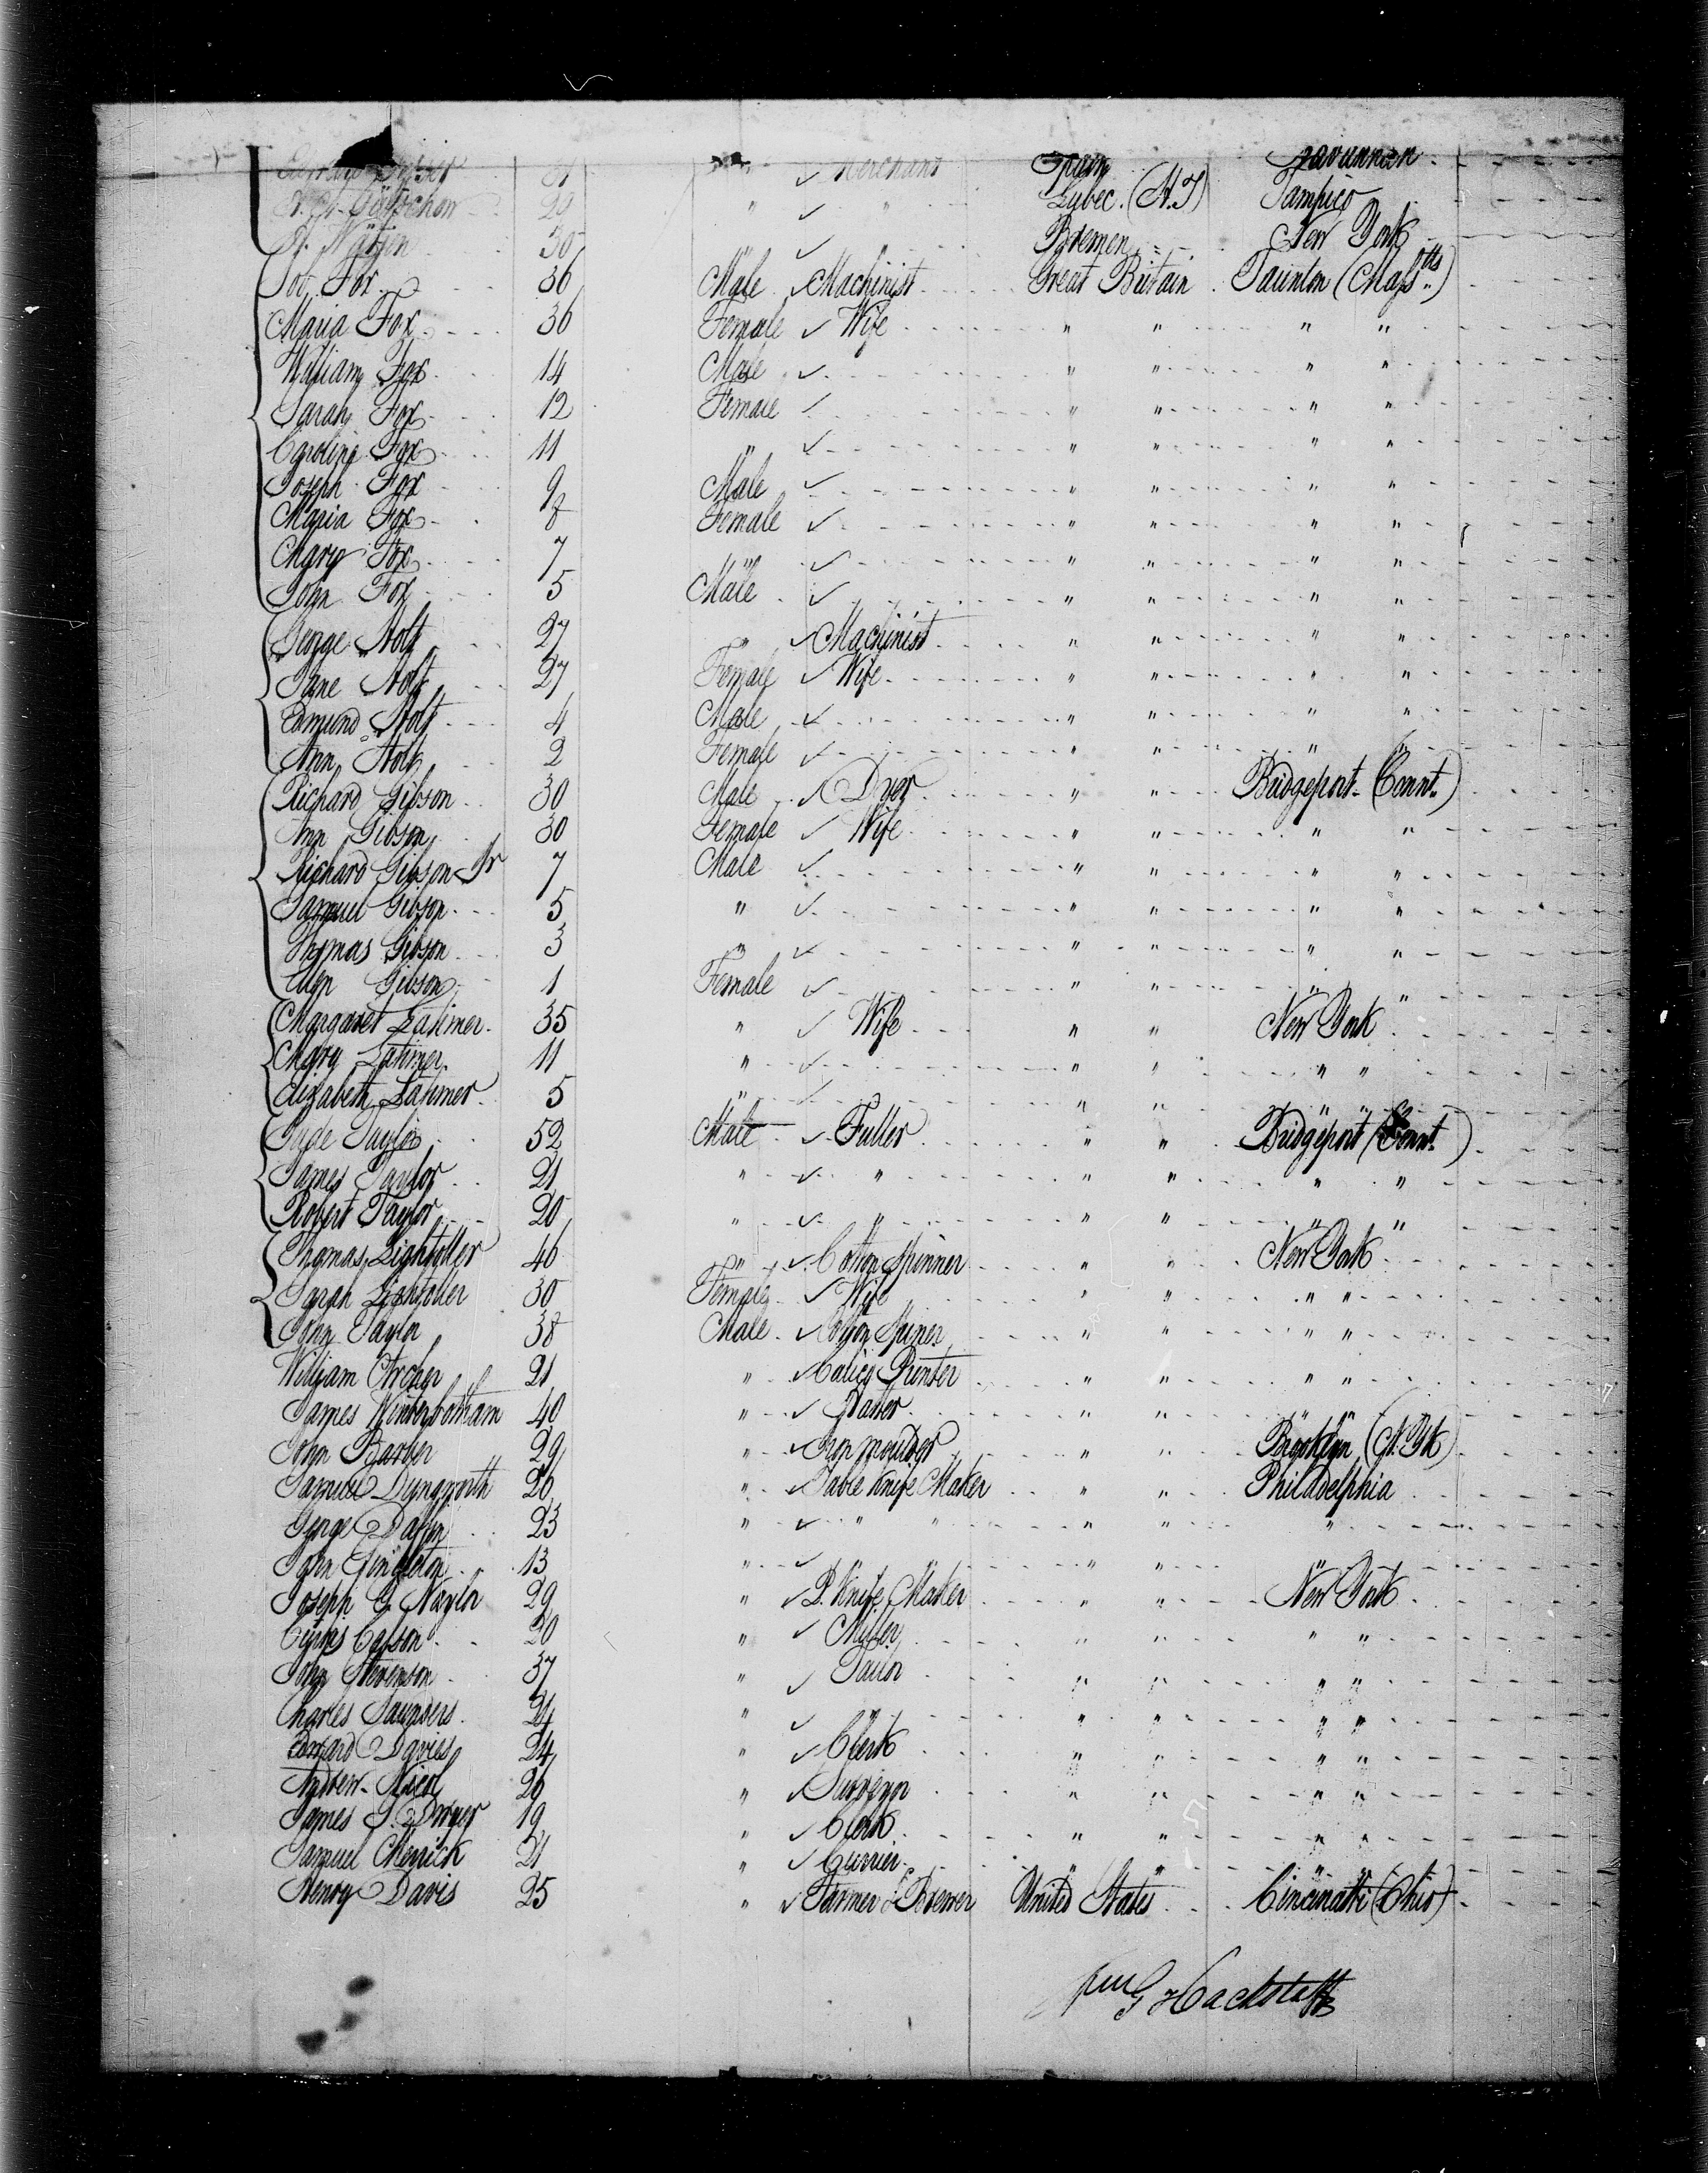 31 " ✓ Merchant Spain Havannah
29 " ✓ " Lubec. (N. T) Tampico
30 ✓ Bremen New York
Job Fox 36 Male ✓ Machinist Great Britain Taunton (Massts)
Maria Fox 36 Female ✓ Wife " " " "
William Fox 14 Male ✓ " " " "
Sarah Fox 12 Female ✓ " " " "
Caroline Fox 11 " ✓ " " " "
Joseph Fox 9 Male ✓ " " " "
Maria Fox 8 Female ✓ " " " "
Mary Fox 7 " ✓ " " " "
John Fox 5 Male ✓ " " " "
George Holt 27 " ✓ Machinist " " " "
Jane Holt 27 Female ✓ Wife " " " "
Edmund Holt 4 Male ✓ " " " "
Ann Holt 2 Female ✓ " " " "
Richard Gibson 30 Male ✓ Dyer " " Bridgeport (Connt.)
Ann Gibson 30 Female ✓ Wife " " " "
Richard Gibson Jr 7 Male ✓ " " " "
Samuel Gibson 5 " ✓ " " " "
Thomas Gibson 3 " ✓ " " " "
Ellen Gibson 1 Female ✓ " " " "
Margaret Latimer 35 " ✓ Wife " " New York
Mary Latimer 11 " ✓ " " " "
Elizabeth Latimer 5 " ✓ " " " "
Taylor 52 Male ✓ Fuller " " Bridgeport (Connt.)
James Taylor 21 " ✓ " " " " "
Robert Taylor 20 " ✓ " " " " "
Thomas Lightoller 46 " ✓ Cotton Spinner " " New York
Sarah Lightoller 30 Female ✓ Wife " " " "
John Taylor 38 Male ✓ Cotton Spiner " " " "
William Archer 21 " ✓ Calico Printer " " " "
James Winterbotham 40 " ✓ " " " "
John Barber 29 " ✓ Iron moulder " " Brooklyn (N. Yk)
Samuel Dungworth 26 " ✓ Table Knife Maker " " Philadelphia
George 23 " ✓ " " " " "
John Singleton 13 " ✓ " " "
Joseph G. Naylor 29 " ✓ P. Knife Maker " " New York
Casson 20 " ✓ Miller " " " "
John Stevenson 37 " ✓ Tailor " " " "
Charles Saunders 21 " ✓ " " " "
Edward Davies 24 " ✓ Clerk " " " "
Andrew Nicol 26 " ✓ Surveyor " " " "
James J. Dwyer 19 " ✓ Clerk " " " "
Samuel Merrick 21 " ✓ Currier " " " "
Henry Davis 25 " ✓ Farmer & Brewer United States Cincinatti (Ohio)
Wm G Hackstaff